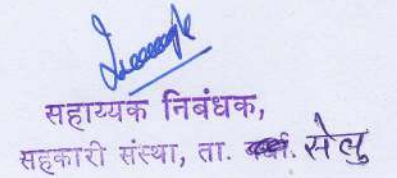 सहाय्यक निबंधक,
सहकारी संस्था, ता. सेलु